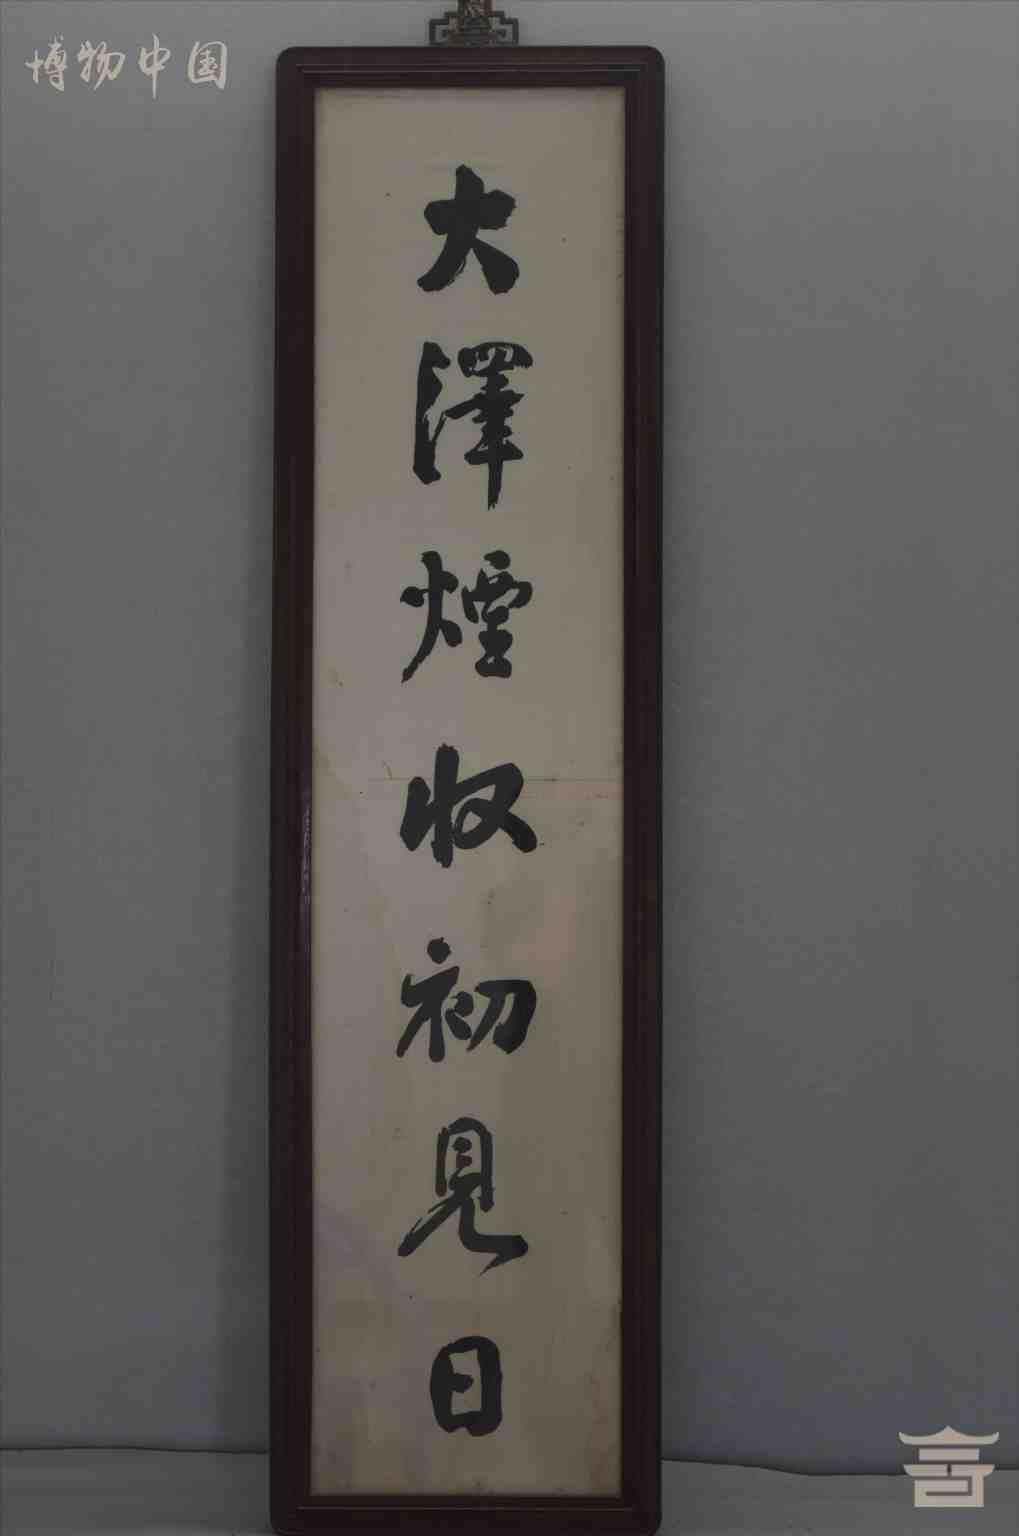 博物中国
大澤煙收初見日